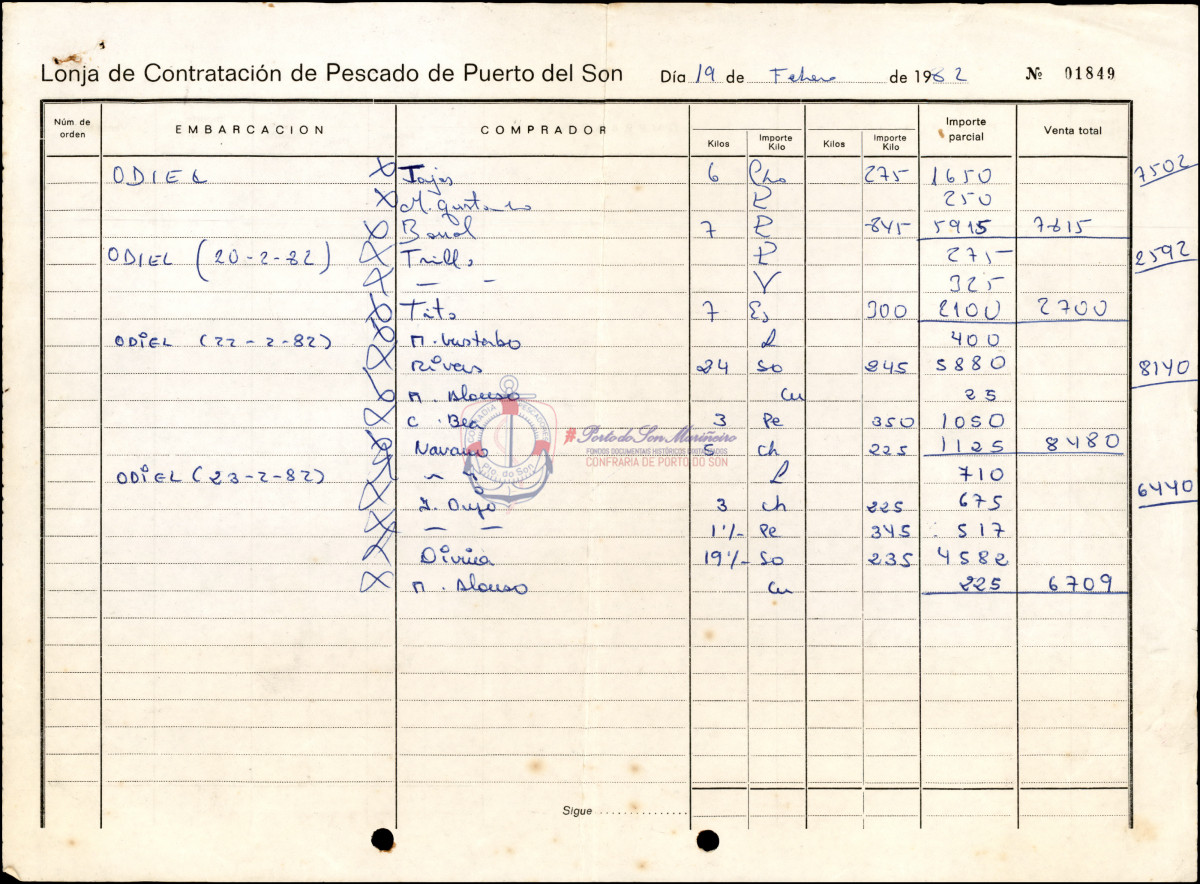 Lonja de Contratación de Pescado de Puerto del Son Día 19 de Febrero de 1982 Nº 01849
Núm de orden EMBARCACION COMPRADOR Kilos Importe Kilo Kilos Importe Kilo Importe parcial Venta total
ODIEL X 6 Cho 275 1650 7502
X M. Gustavo P 250
X 7 P 845 5915 7815
ODIEL (20-2-82) X Trillo P 275 2592
X — — V 325
X Tito 7 Es 300 2100 2700
ODIEL (22-2-82) X M. Gustavo L 400
X Rivas 24 So 245 5880 8140
X M. Alonso Cu 25
X C. Bea 3 Pe 350 1050
X Navarro 5 Ch 225 1125 8480
ODIEL (23-2-82) X L 710
X 3 Ch 225 675 6440
X — — 1½ Pe 345 517
X Divina 19½ So 235 4582
X M. Alonso Cu 225 6709
COFRADIA PESCADORES
Pto. do Son
#Porto do Son Mariñeiro
FONDOS DOCUMENTAIS HISTÓRICOS DIXITALIZADOS
CONFRARÍA DE PORTO DO SON
Sigue